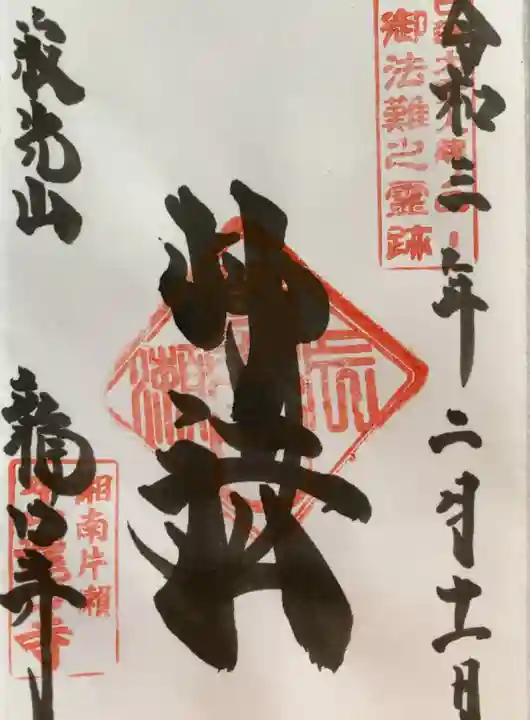 令和三年二月十一日
日蓮大聖人
御法難之霊跡
妙法
寂光山
龍口寺
湘南片瀬
龍口寺